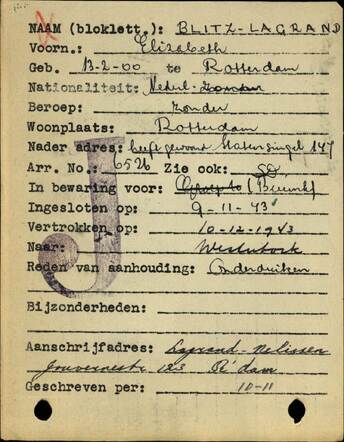 NAAM (bloklett.): BLITZ-LAGRAND
Voorn.: Elizabeth
Geb. 13-2-00 te Rotterdam
Nationaliteit: Nederl.
Beroep: zonder
Woonplaats: Rotterdam
Nader adres: heeft gewoond Statensingel 147
Arr. No.: 6526 Zie ook: SD
In bewaring voor:
Ingesloten op: 9-11-43
Vertrokken op: 10-12-1943
Naar: Westerbork
Reden van aanhouding: Onderduiken
Bijzonderheden:
Aanschrijfadres: Lagrand-Nelissen
Gouvernestr 123 R'dam
Geschreven per: 10-11
J